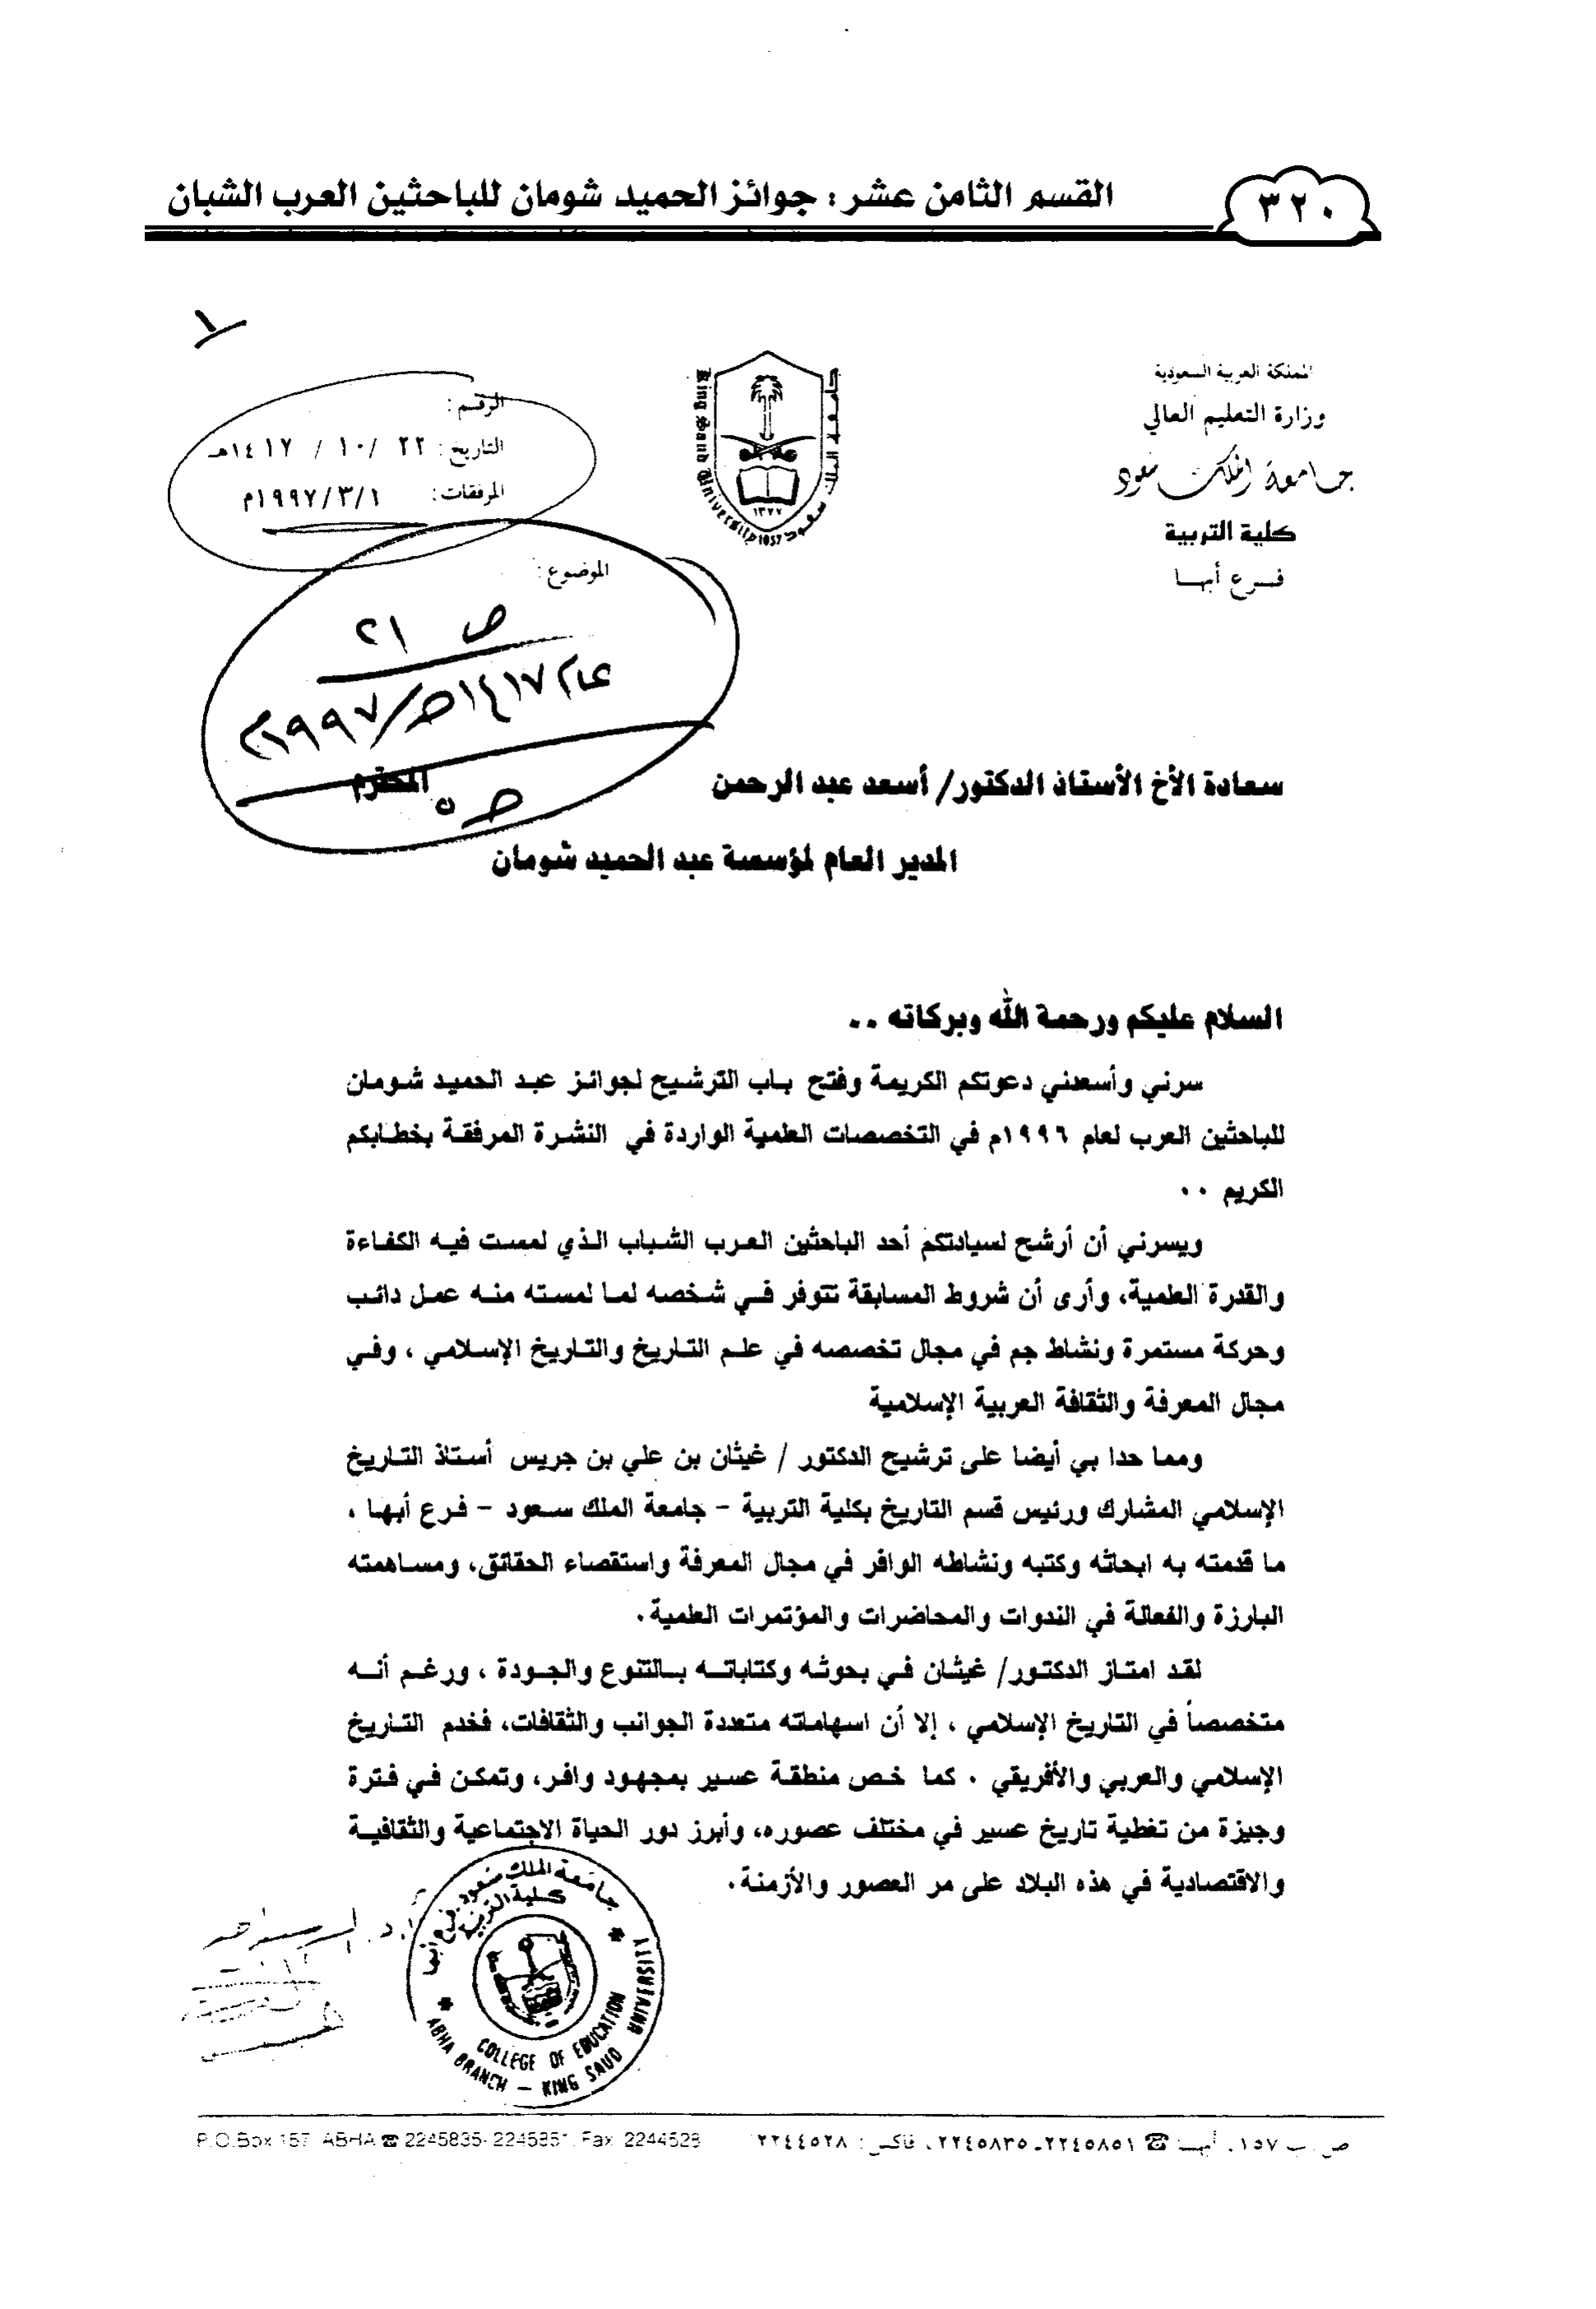 ٣٢٠
القسم الثامن عشر : جوائز الحميد شومان للباحثين العرب الشبان
١
المملكة العربية السعودية
وزارة التعليم العالي
جامعة الملك سعود
كلية التربية
فرع أبها
جامعة الملك سعود
King Saud University
١٣٧٧
1957
الرقم :
التاريخ : ٢٢ / ١٠ / ١٤١٧هـ
المرفقات : ١/٣/١٩٩٧م
الموضوع :
ص ٢١
عام ١٤١٧هـ/١٩٩٧م
سعادة الأخ الأستاذ الدكتور/ أسعد عبد الرحمن المحترم
المدير العام لمؤسسة عبد الحميد شومان
السلام عليكم ورحمة الله وبركاته ..
سرني وأسعدني دعوتكم الكريمة وفتح باب الترشيح لجوائز عبد الحميد شومان
للباحثين العرب لعام ١٩٩٦م في التخصصات العلمية الواردة في النشرة المرفقة بخطابكم
الكريم ..
ويسرني أن أرشح لسيادتكم أحد الباحثين العرب الشباب الذي لمست فيه الكفاءة
والقدرة العلمية، وأرى أن شروط المسابقة تتوفر في شخصه لما لمسته منه عمل دائب
وحركة مستمرة ونشاط جم في مجال تخصصه في علم التاريخ والتاريخ الإسلامي ، وفي
مجال المعرفة والثقافة العربية الإسلامية
ومما حدا بي أيضا على ترشيح الدكتور / غيثان بن علي بن جريس أستاذ التاريخ
الإسلامي المشارك ورئيس قسم التاريخ بكلية التربية - جامعة الملك سعود - فرع أبها ،
ما قدمته به ابحاثه وكتبه ونشاطه الوافر في مجال المعرفة واستقصاء الحقائق، ومساهمته
البارزة والفعالة في الندوات والمحاضرات والمؤتمرات العلمية .
لقد امتاز الدكتور/ غيثان في بحوثه وكتاباته بالتنوع والجودة ، ورغم أنه
متخصصاً في التاريخ الإسلامي ، إلا أن اسهاماته متعددة الجوانب والثقافات، فخدم التاريخ
الإسلامي والعربي والأفريقي . كما خص منطقة عسير بمجهود وافر، وتمكن في فترة
وجيزة من تغطية تاريخ عسير في مختلف عصوره، وأبرز دور الحياة الاجتماعية والثقافية
والاقتصادية في هذه البلاد على مر العصور والأزمنة.
جامعة الملك سعود فرع أبها
كلية التربية
COLLEGE OF EDUCATION
ABHA BRANCH – KING SAUD UNIVERSITY
ص. ب ١٥٧. أبها ☎ ٢٢٤٥٨٥١ـ ٢٢٤٥٨٣٥، فاكس : ٢٢٤٤٥٢٨
P.O.Box 157 ABHA ☎ 2245835- 2245851, Fax 2244528